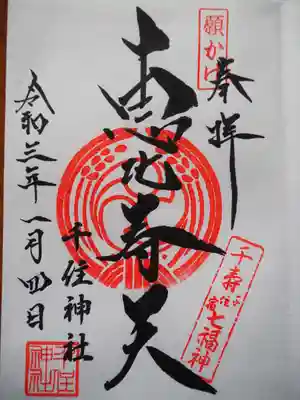 願かけ
奉拝
恵比寿天
千寿七福神
千住宿
千住神社
令和三年一月四日
千住神社